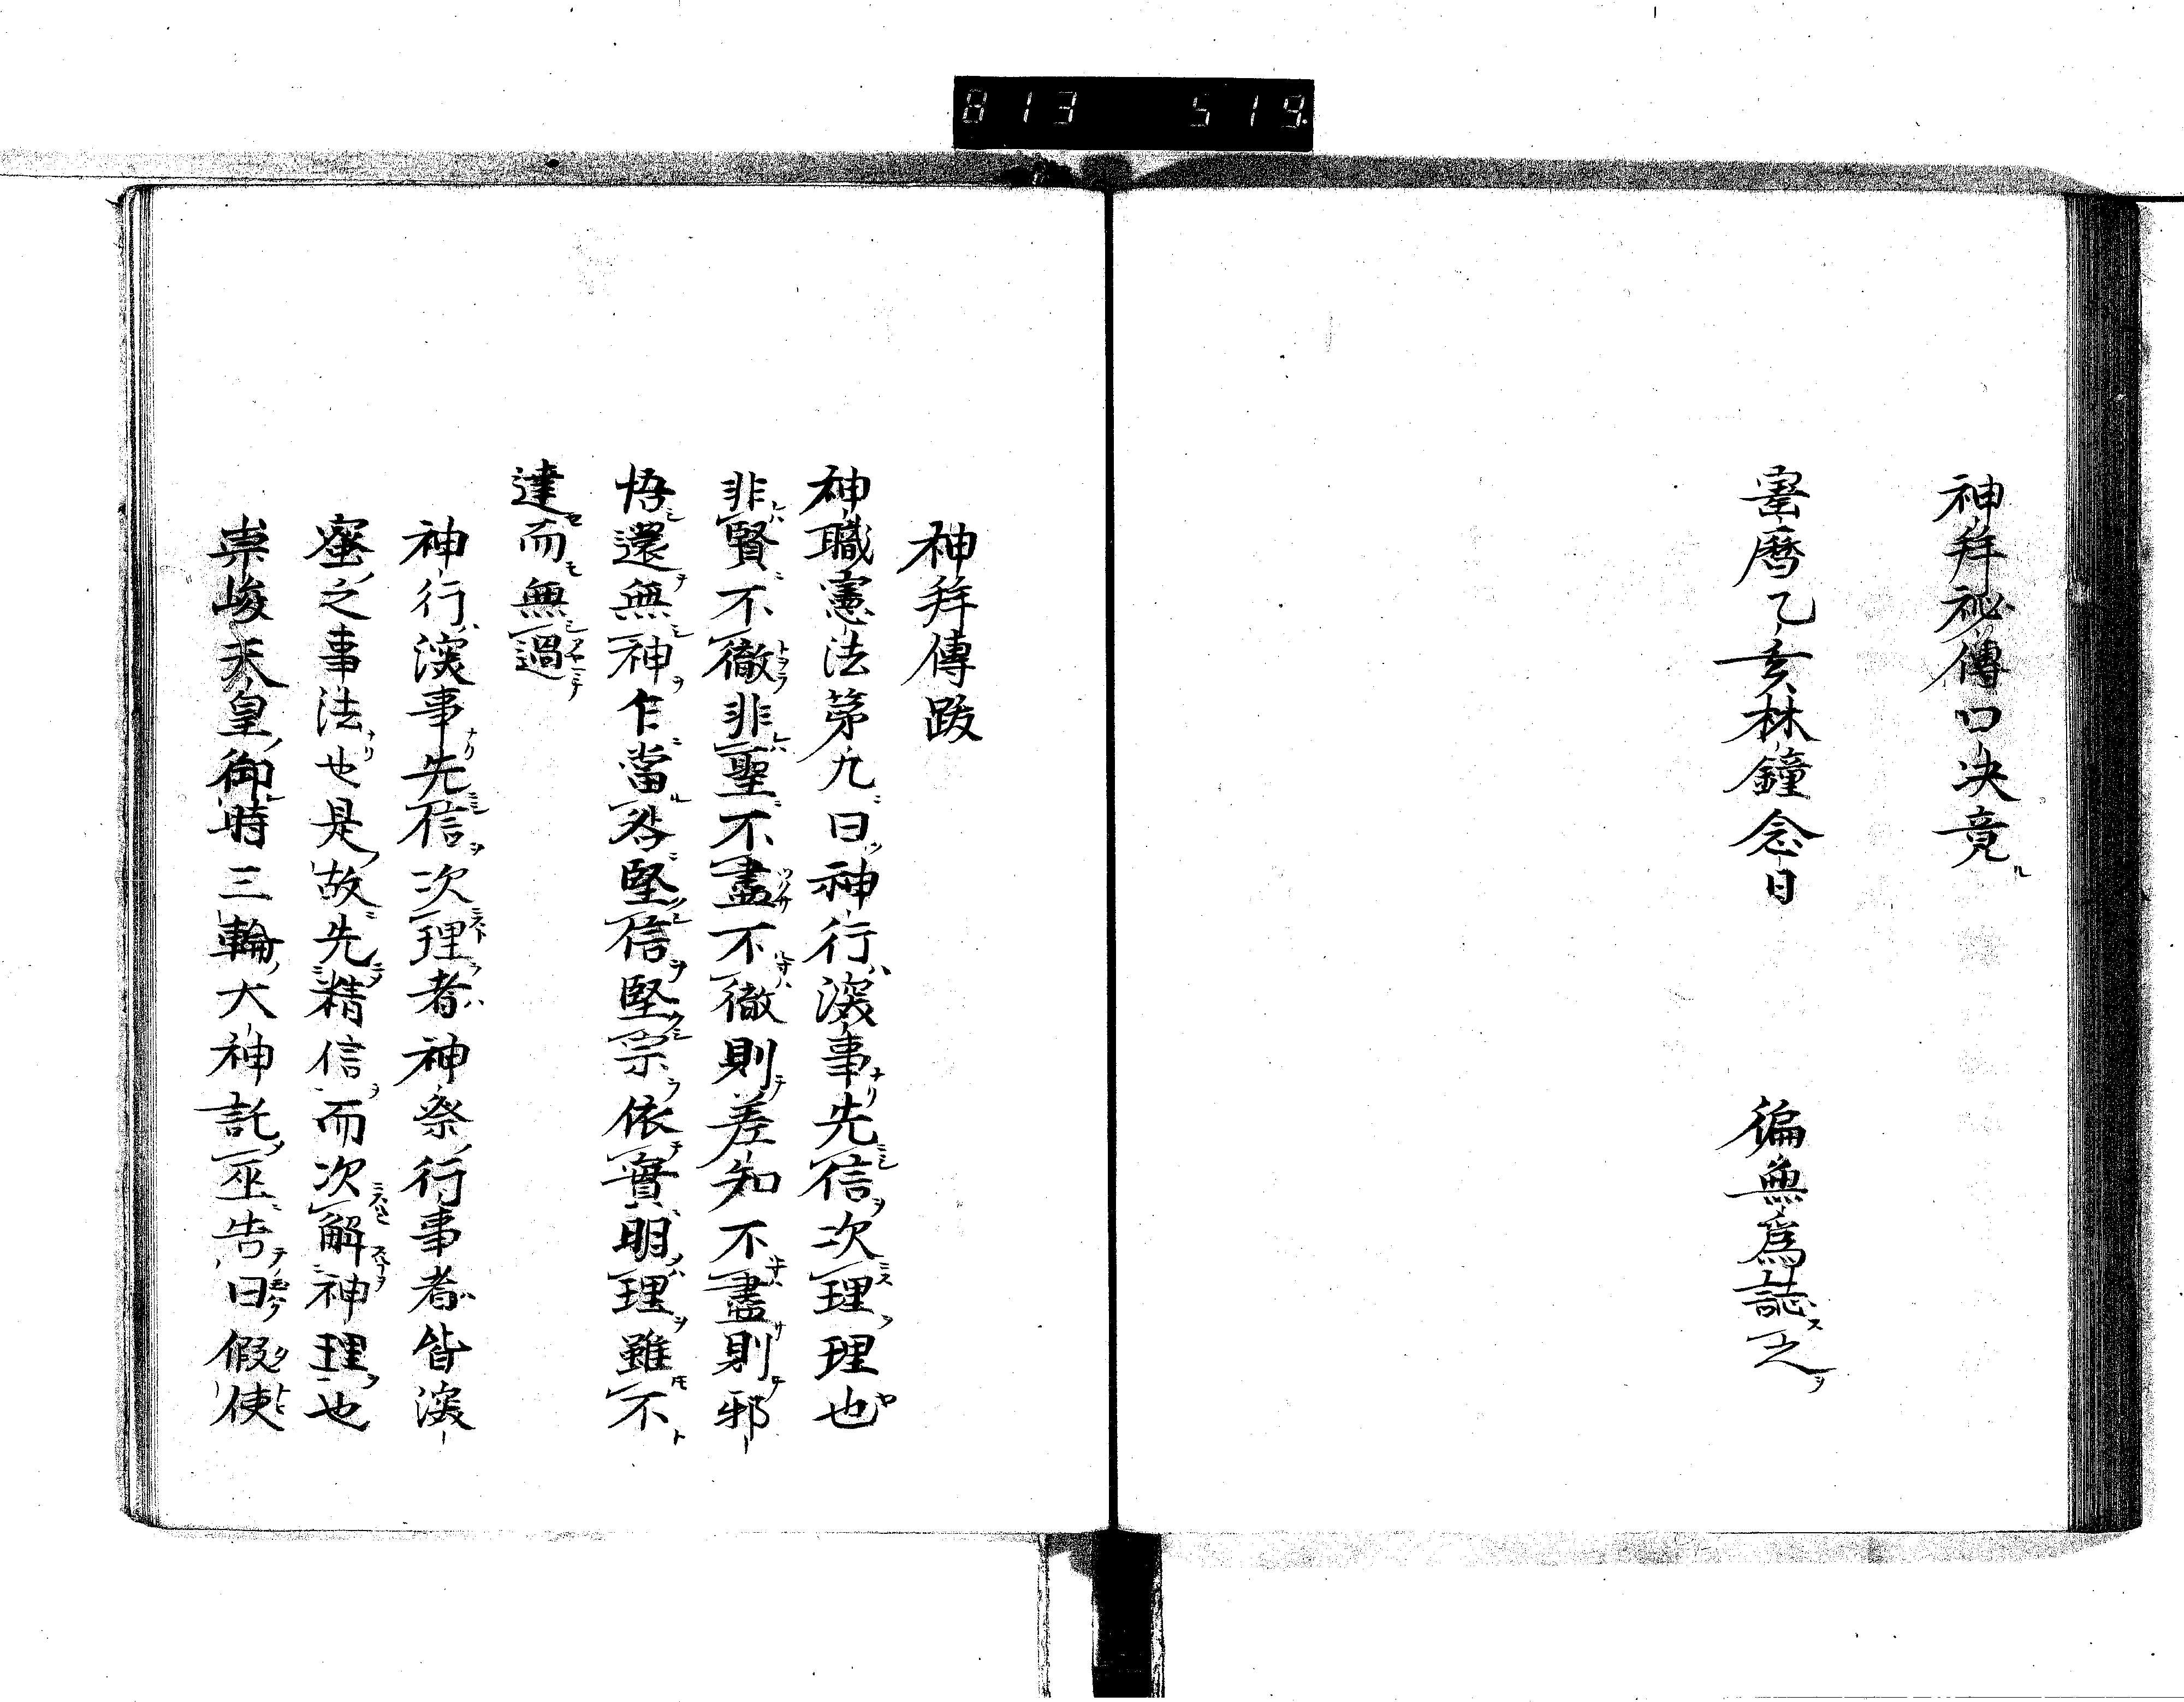 813 519.
神拜祕傳口决竟
寚曆乙亥林鐘念日 徧無爲誌之
神拜傳跋
神職憲法第九曰神行深事先信次理理也
非賢不徹非聖不盡不徹則差知不盡則邪
悟還無神乍當咎堅信堅宗依實明理雖不
達而無過
神行深事先信次理者神祭行事者皆深
蜜之事法也是故先精信而次解神理也
崇峻天皇御時三輪大神託巫告曰假使